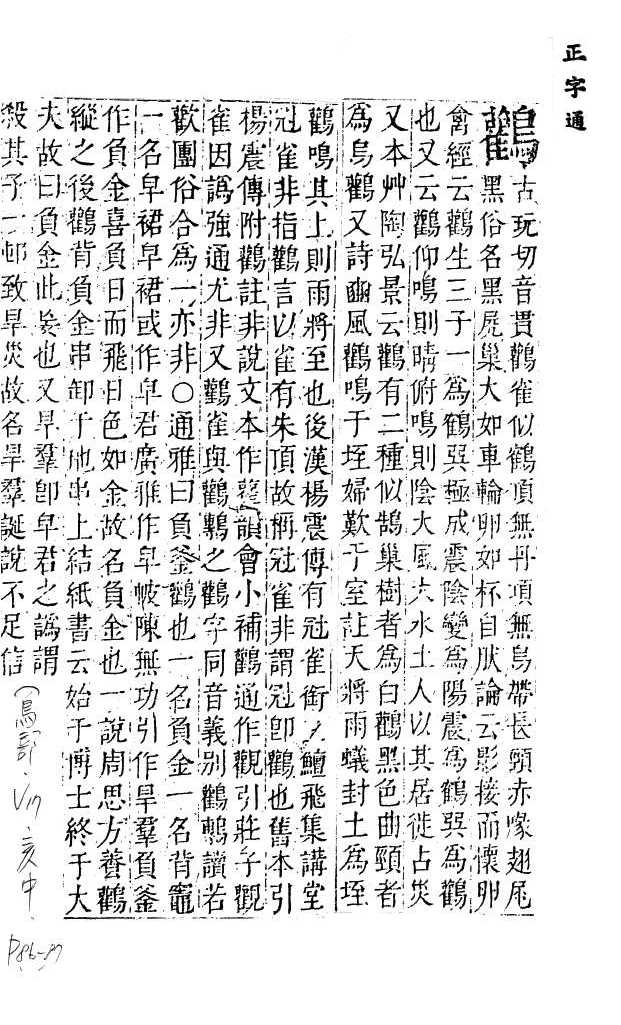 正字通
鸛古玩切音貫鸛雀似鶴頂無丹項無烏帶長頸赤喙翅尾
黑俗名黑尻巢大如車輪卵如杯自肰論云影接而懷卵
禽經云鸛生三子一爲鶴巽極成震陰變爲陽震爲鶴巽爲鸛
也又云鸛仰鳴則晴俯鳴則陰大風大水土人以其居徙占災
又本艸陶弘景云鸛有二種似鵠巢樹者爲白鸛黑色曲頸者
爲烏鸛又詩豳風鸛鳴于垤婦歎于室註天將雨蟻封土爲垤
鸛鳴其上則雨將至也後漢楊震傳有冠雀銜鱣飛集講堂
冠雀非指鸛言以雀有朱頂故稱冠雀非謂冠卽鸛也舊本引
楊震傳附鸛註非說文本作雚韻會小補鸛通作觀引莊子觀
雀因譌強通尤非又鸛雀與鸛鷒之鸛字同音義別鸛鷒讀若
歡團俗合爲一亦非○通雅曰負釜鸛也一名負金一名背竈
一名皁裙皁裙或作皁君廣雅作皁帔陳無功引作旱羣負釜
作負金喜負日而飛日色如金故名負金也一說周思方養鸛
縱之後鸛背負金串卸于地串上結紙書云始于博士終于大
夫故曰負金此妄也又旱羣卽皁君之譌謂
殺其子一邨致旱災故名旱羣誕說不足信
(鳥部.Vm.亥中.
P86-87